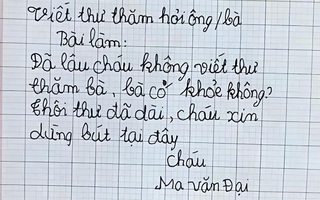 Viết thư thăm hỏi ông/bà
Bài làm:
Đã lâu cháu không viết thư
thăm bà, bà cố khỏe không?
Thôi thư đã dài, cháu xin
dừng bút tại đây
Cháu
Ma Văn Đại